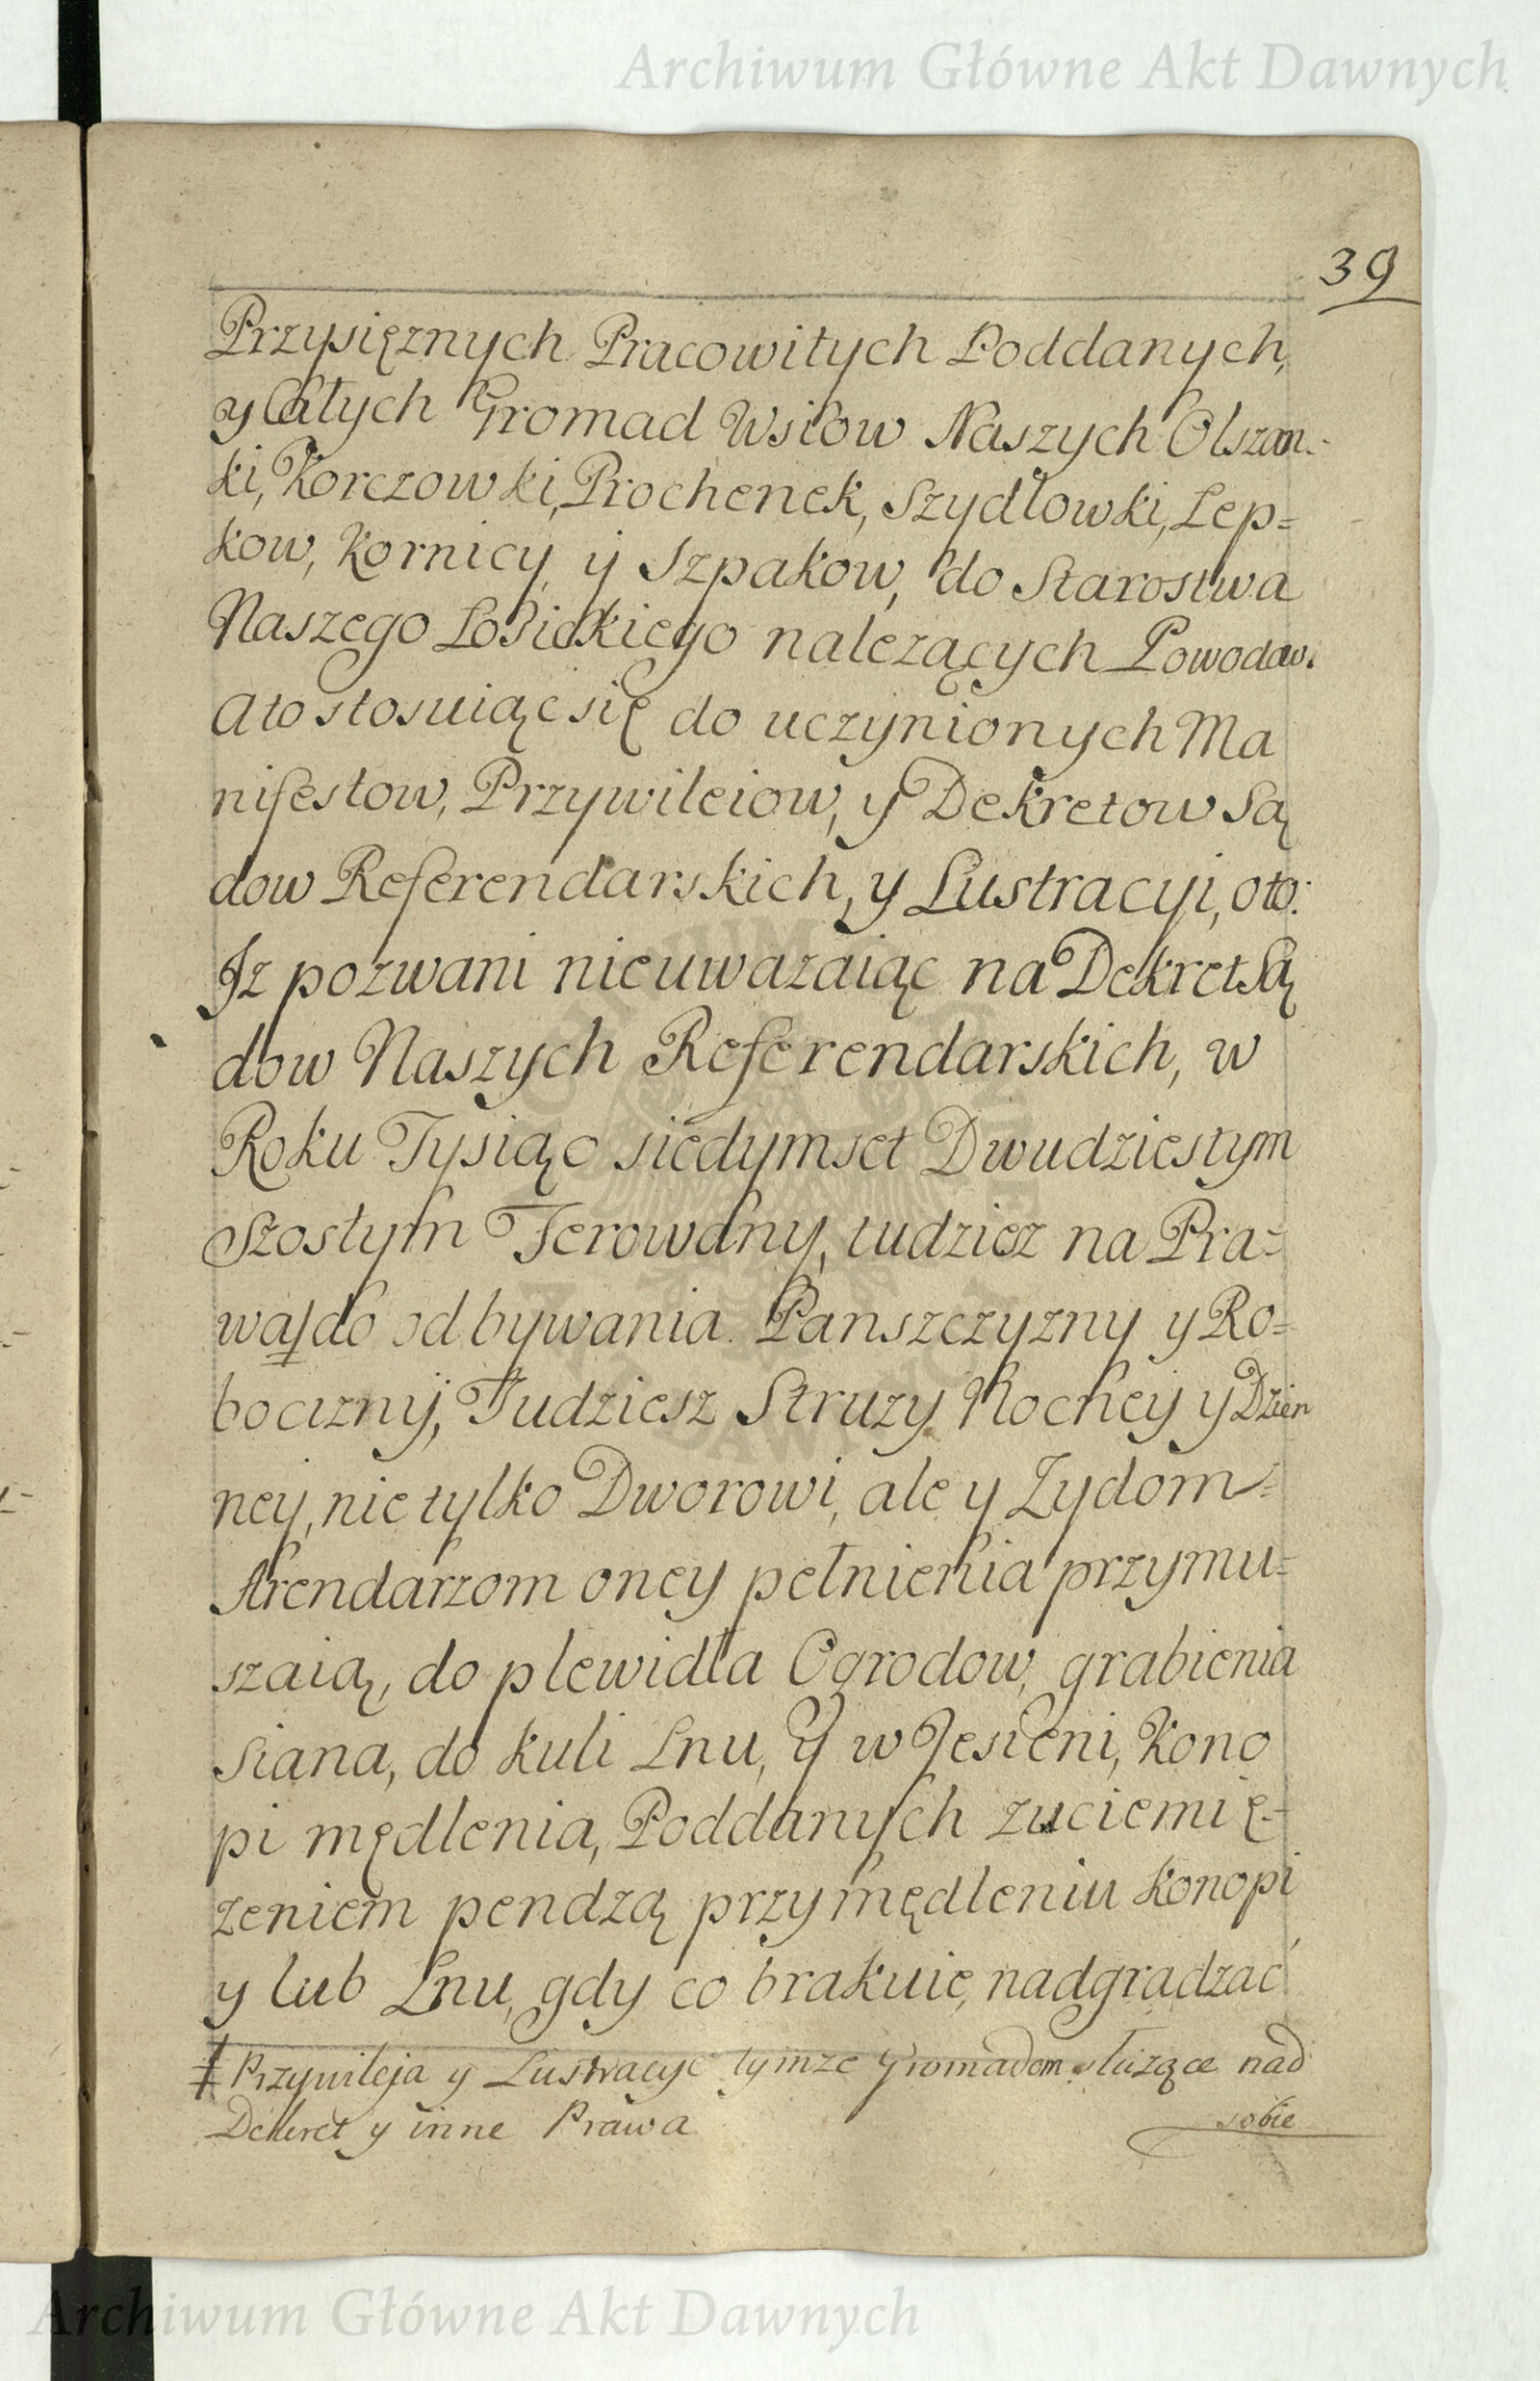 Archiwum Główne Akt Dawnych
39
Przysięznych Pracowitych Poddanych,
y Całych Gromad Wsiow Naszych Olszan-
ki, Korczowki, Prochenek, Szydłowki, Lep=
kow, Kornicy, ÿ Szpakow, do Starostwa
Naszego Łosickiego nalezących Powodow.
A to stosuiąc się do uczynionych Ma
nifestow, Przywileiow, y Dekretow Są
dow Referendarskich, y Lustracyi, oto:
Jz pozwani nieuwazaiąc na Dekret Są
dow Naszych Referendarskich, w
Roku Tysiąc siedymset Dwudziestym
Szostym Ferowany, tudziez na Pra=
wa ǂ do odbywania Panszczyzny y Ro=
bocizny, Tudziesz Struzy Nocney y Dzien
ney, nie tylko Dworowi, ale y Zydom=
Arendarzom oney pełnienia przymu=
szaią, do plewidła Ogrodow, grabienia
Siana, do kuli Lnu, Y w Jesieni, Kono
pi mędlenia, Poddanych zuciemię-
zeniem pendzą przy mędleniu konopi
y lub Lnu, gdy co brakuie, nadgradzać
ǂ Przywileja y Lustracye tymze Gromadom służące nad
Dekret y inne Prawa
sobie
Archiwum Główne Akt Dawnych